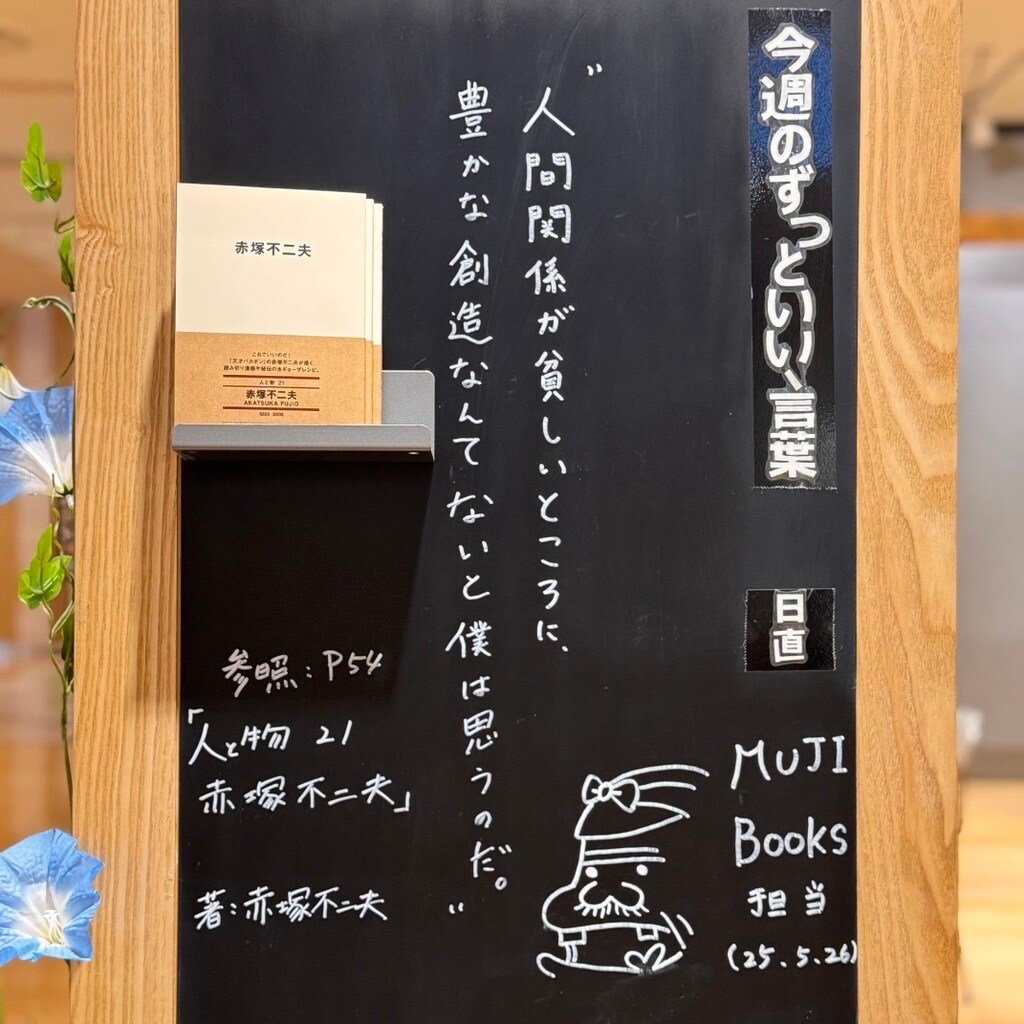 今週のずっといい、言葉
日直
MUJI
BOOKS
担当
(25.5.26)
"人間関係が貧しいところに、
豊かな創造なんてないと僕は思うのだ。"
参照：P54
「人と物 21
赤塚不二夫」
著：赤塚不二夫
赤塚不二夫
これでいいのだ！
『天才バカボン』の赤塚不二夫が描く、
読み切り漫画や秘伝の水ギョーザレシピ。
人と物 21
赤塚不二夫
AKATSUKA FUJIO
1935-2008